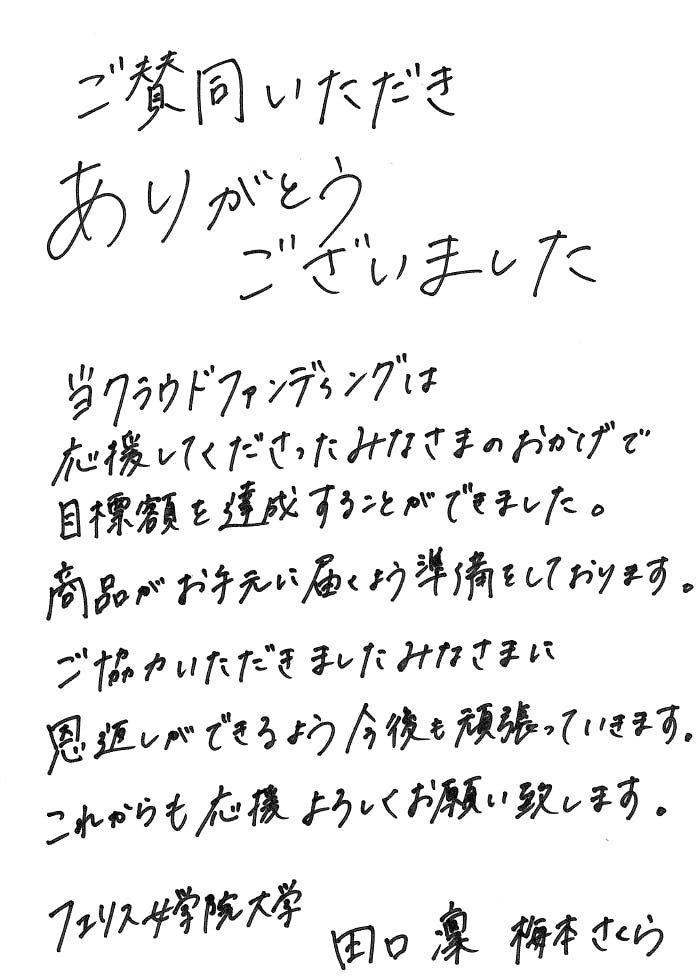 ご賛同いただき
ありがとう
ございました
当クラウドファンディングは
応援してくださったみなさまのおかげで
目標額を達成することができました。
商品がお手元に届くよう準備をしております。
ご協力いただきましたみなさまに
恩返しができるよう今後も頑張っていきます。
これからも応援よろしくお願い致します。
フェリス女学院大学
田口 凜 梅本さくら